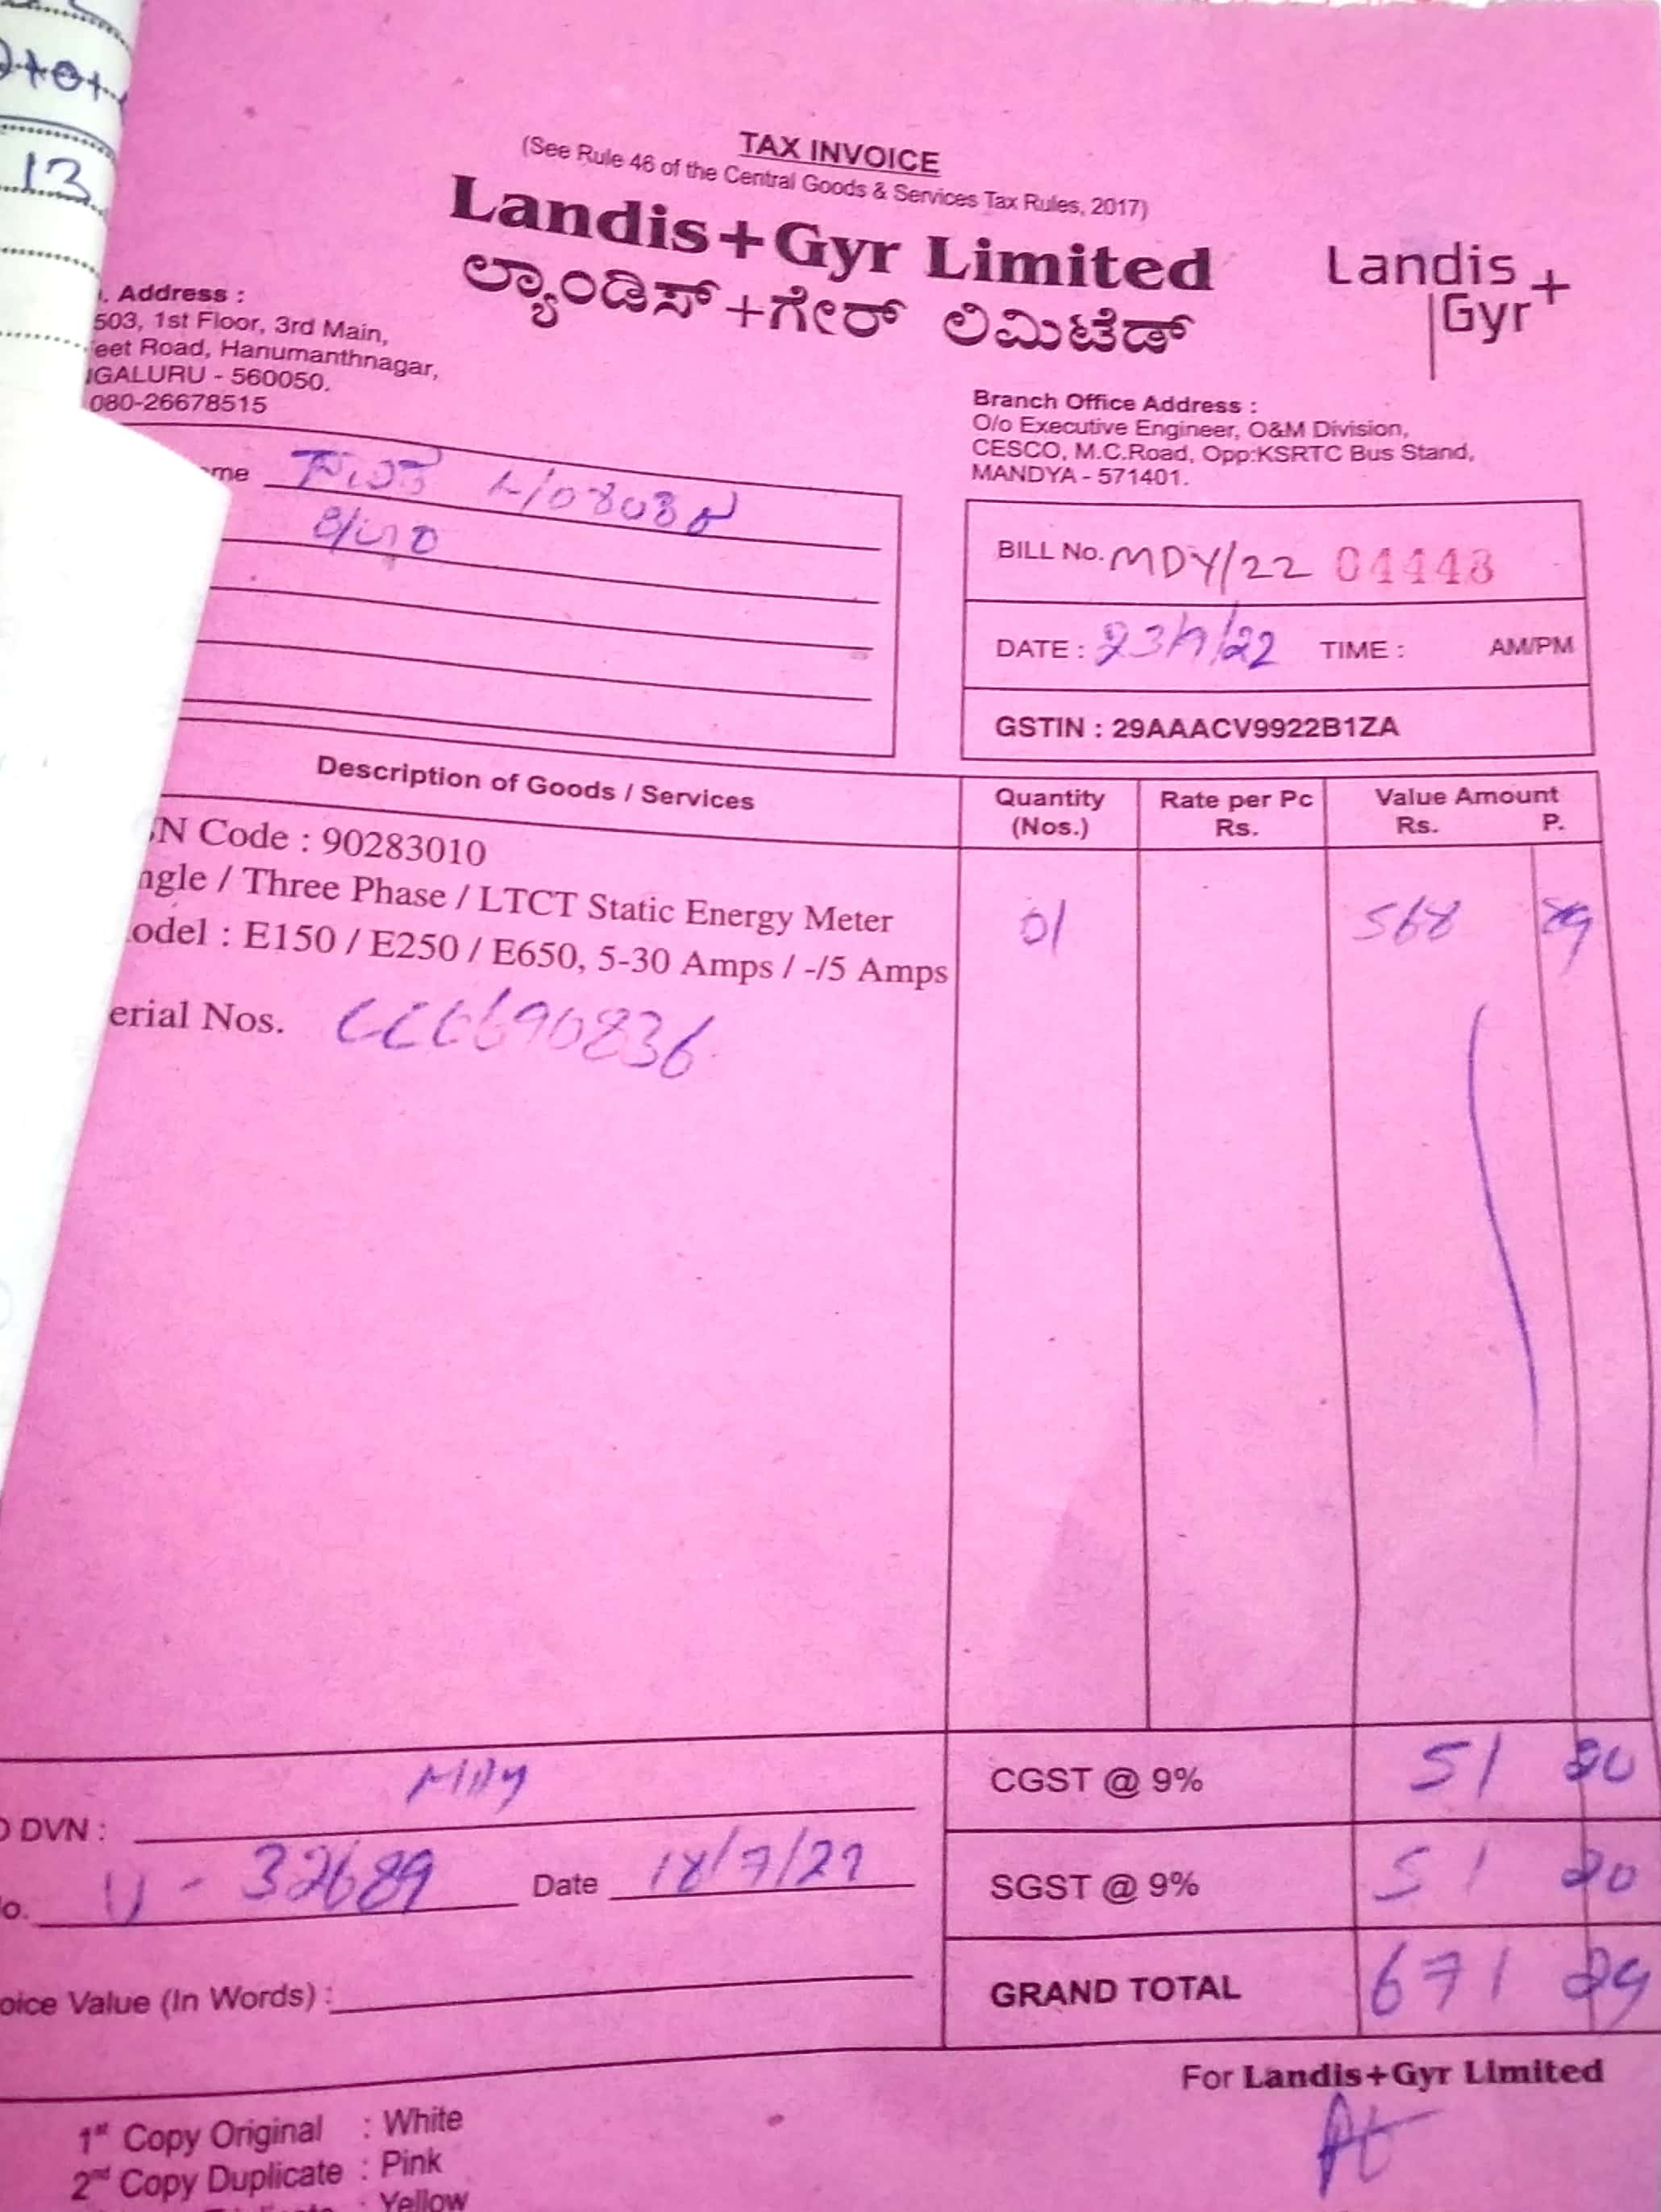 13
TAX INVOICE
(See Rule 46 of the Central Goods & Services Tax Rules, 2017)
Landis+Gyr Limited
ಲ್ಯಾಂಡಿಸ್+ಗೇರ್ ಲಿಮಿಟೆಡ್
Landis+
Gyr
. Address :
503, 1st Floor, 3rd Main,
eet Road, Hanumanthnagar,
GALURU - 560050.
080-26678515
Branch Office Address :
O/o Executive Engineer, O&M Division,
CESCO, M.C.Road, Opp:KSRTC Bus Stand,
MANDYA - 571401.
me
BILL No. MDY/22 04443
DATE : 23/7/22 TIME : AM/PM
GSTIN : 29AAACV9922B1ZA
Description of Goods / Services Quantity (Nos.) Rate per Pc Rs. Value Amount Rs. P.
N Code : 90283010
ngle / Three Phase / LTCT Static Energy Meter 01 568 89
odel : E150 / E250 / E650, 5-30 Amps / -/5 Amps
erial Nos.
CGST @ 9% 51 20
DVN : MDY
SGST @ 9% 51 20
o. U - 32689 Date 18/7/22
GRAND TOTAL 671 29
oice Value (In Words) :
For Landis+Gyr Limited
1st Copy Original : White
2nd Copy Duplicate : Pink
: Yellow